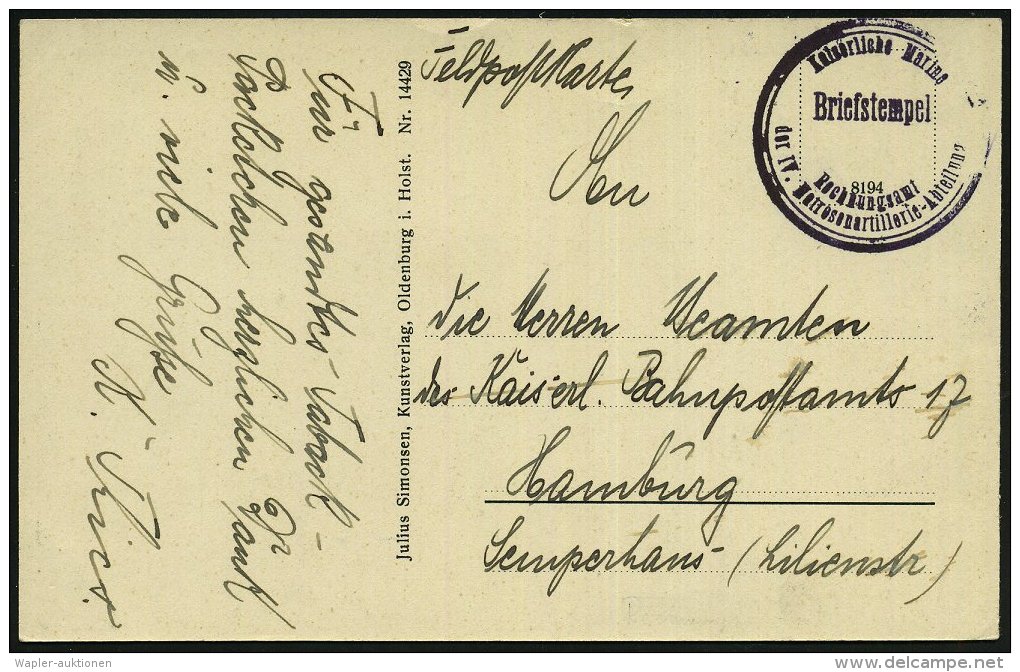 Feldpostkarte
An
die Herren Beamten
des Kaiserl. Bahnpostamts 17
Hamburg
Semperhaus (Lilienstr)
Kaiserliche Marine
Briefstempel
8194
Rechnungsamt
der IV. Matrosenartillerie-Abteilung
Julius Simonsen, Kunstverlag, Oldenburg i. Holst. Nr. 14429
Für gesandtes Taback-
Päckchen herzlichen Dank
u. viele Grüße
Wapler-auktionen
delcampe.net